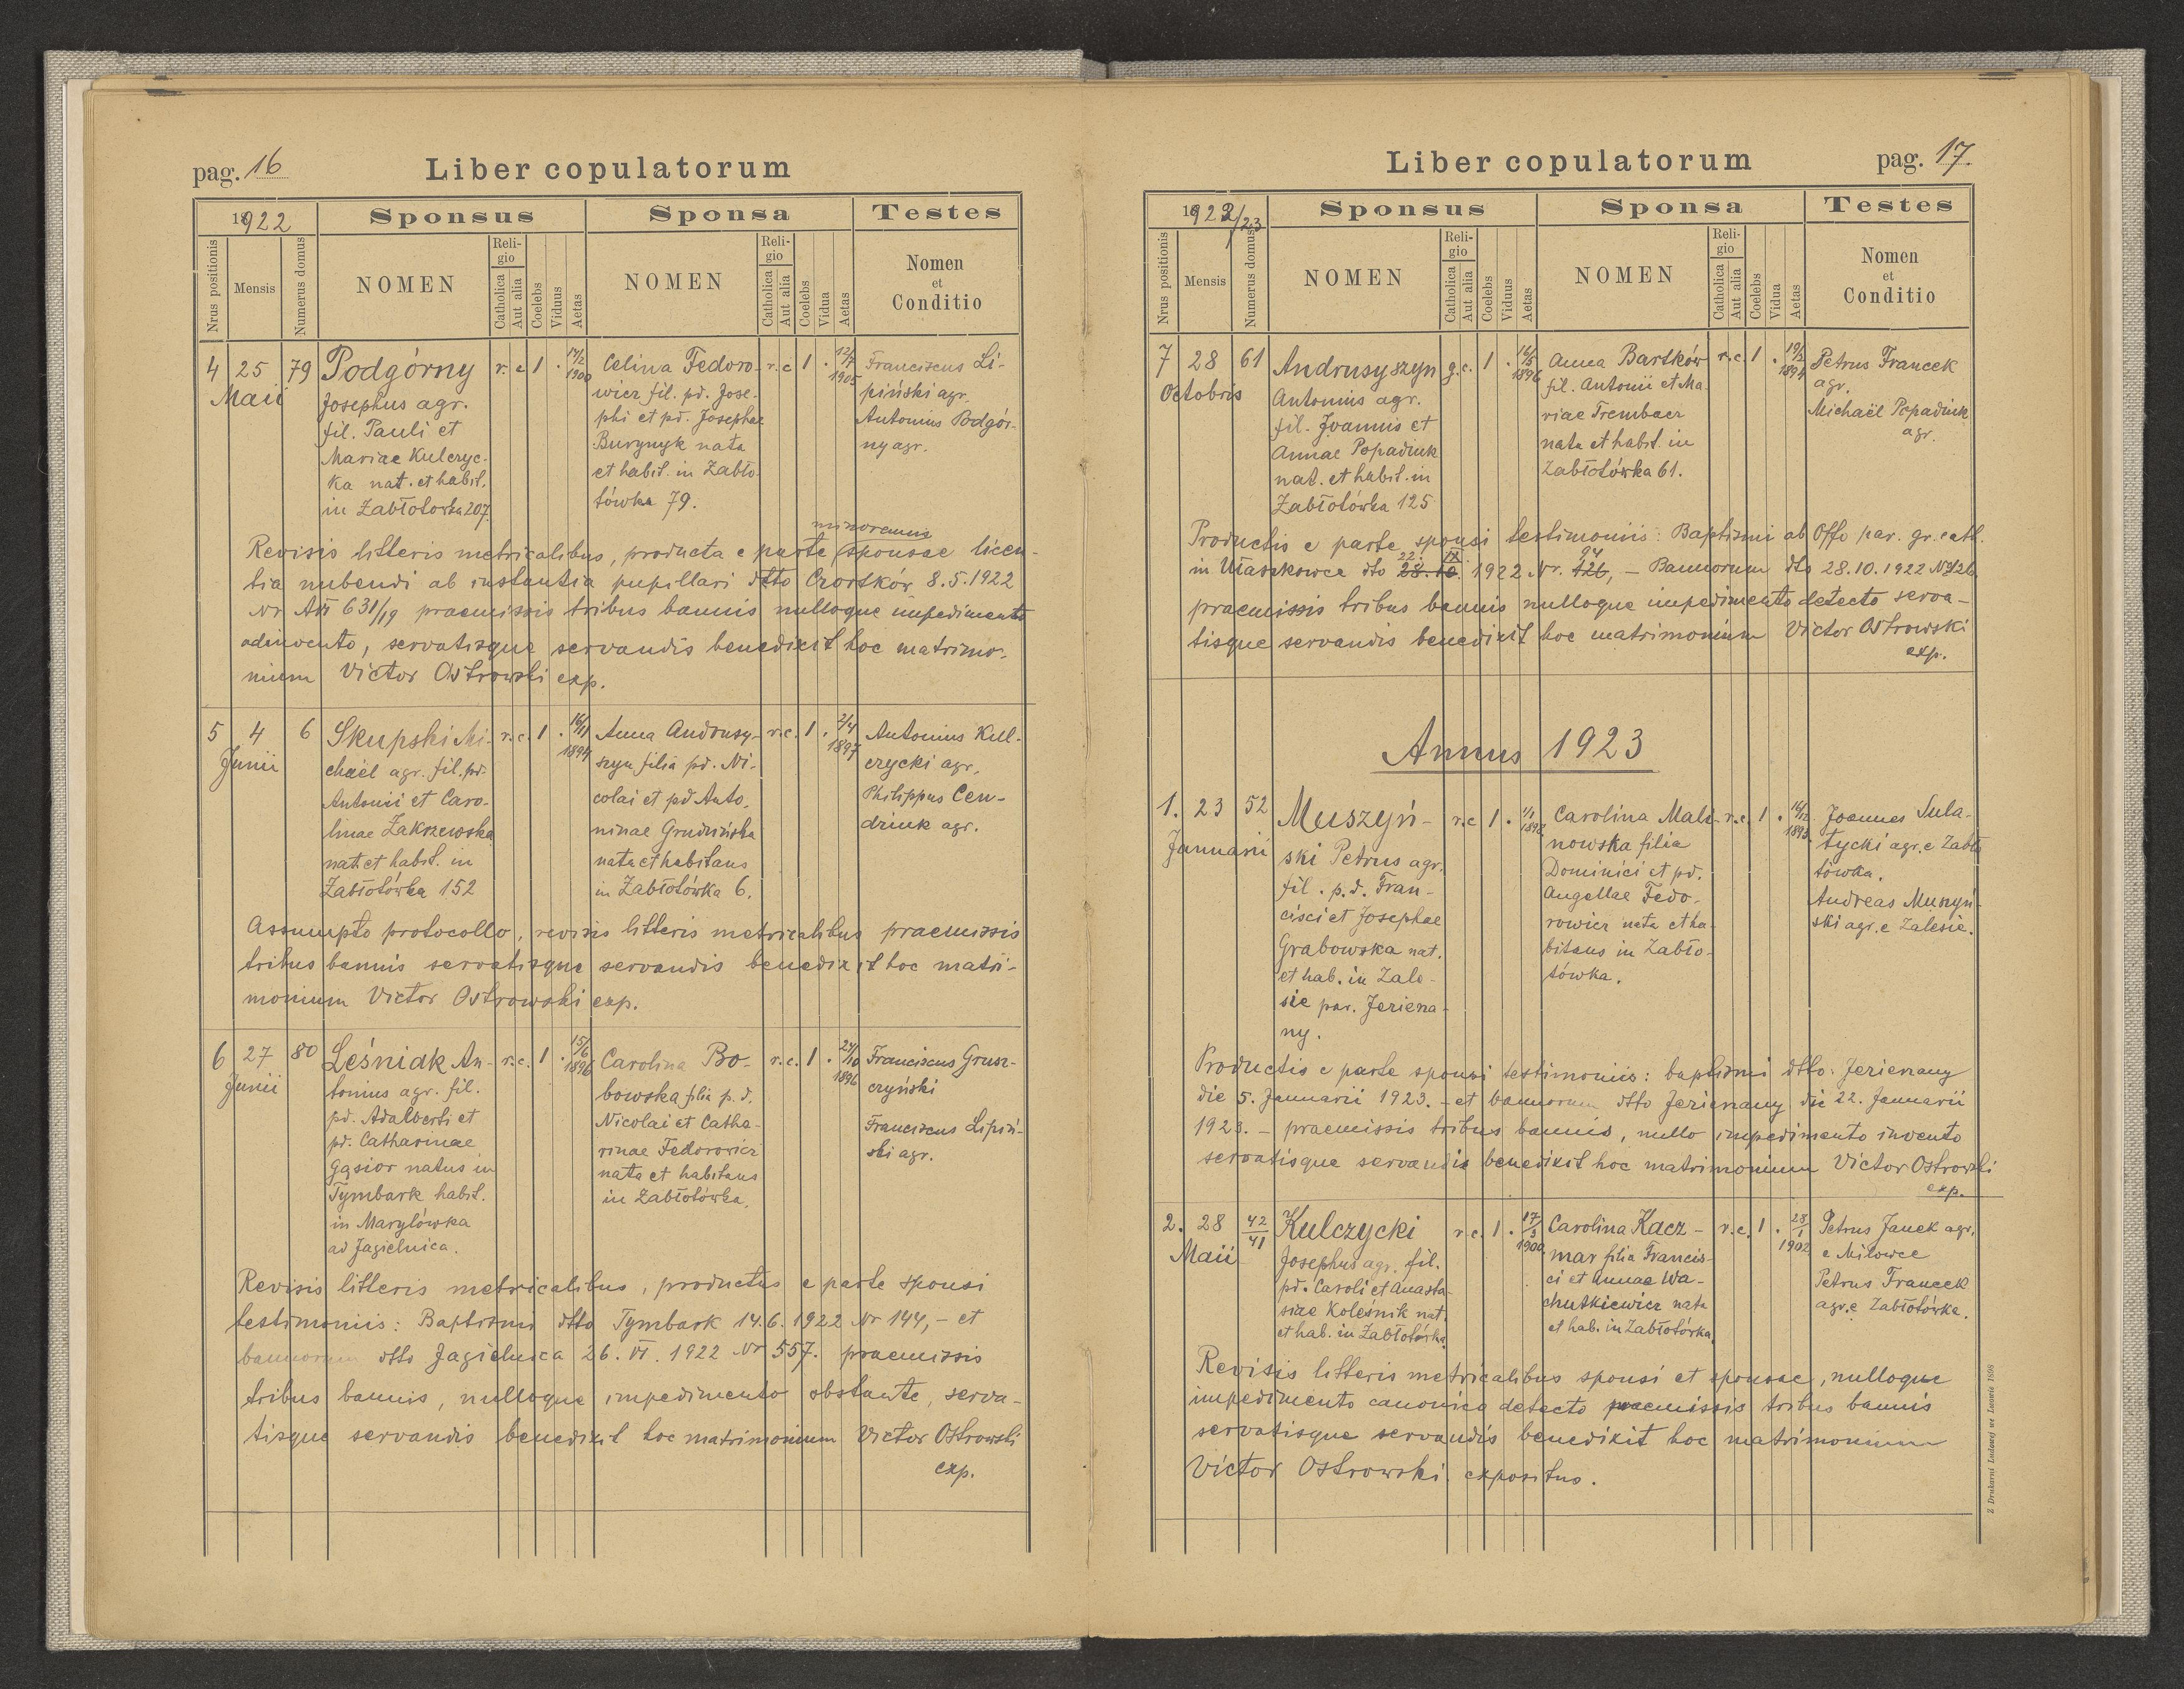 pag. 16
Liber copulatorum
1922
Sponsus
Sponsa
Testes
Nrus positionis
Mensis
Numerus domus
NOMEN
Religio
Catholica
Aut alia
Coelebs
Viduus
Aetas
NOMEN
Religio
Catholica
Aut alia
Coelebs
Vidua
Aetas
Nomen
et
Conditio
4 25 79
Maii
Podgórny
Josephus agr.
fil. Pauli et
Mariae Kulczyc-
ka nat. et habit.
in Zabłotówka 207.
r. c 1 . 17/2 1900
Celina Fedoro-
wicz fil. pd. Jose-
phi et pd. Josephae
Burynyk nata
et habit. in Zabło-
tówka 79.
r. c 1 . 12/7 1905
Franciscus Li-
piński agr.
Antonius Podgór-
ny agr.
minorennis
Revisis litteris metricalibus, producta e parte sponsae licen-
tia nubendi ab instantia pupillari dtto Czortków 8.5.1922
Nr 631/19 praemissis tribus bannis nulloque impedimento
adinvento, servatisque servandis benedixit hoc matrimo-
nium Victor Ostrowski exp.
5 4 6
Junii
Skupski Mi-
chaël agr. fil. pd.
Antonii et Caro-
linae Zakrzewska
nat. et habit. in
Zabłotówka 152
r. c. 1 . 16/11 1894
Anna Andrusy-
szyn filia pd. Ni-
colai et pd Anto-
ninae Grudzińska
nata et habitans
in Zabłotówka 6.
r. c. 1 . 2/4 1897
Antonius Kul-
czycki agr.
Philippus Cen-
dziuk agr.
Assumpto protocollo, revisis litteris metricalibus praemissis
tribus bannis servatisque servandis benedixit hoc matri-
monium Victor Ostrowski exp.
6 27 80
Junii
Leśniak An-
tonius agr. fil.
pd. Adalberti et
pd. Catharinae
Gąsior natus in
Tymbark habit.
in Marylówka
ad Jagielnica.
r. c. 1 . 15/6 1896
Carolina Bo-
bowska filia p. d.
Nicolai et Catha-
rinae Fedorowicz
nata et habitans
in Zabłotówka.
r. c. 1 . 24/10 1896
Franciscus Grusz-
czyński
Franciscus Lipiń-
ski agr.
Revisis litteris metricalibus, productus e parte sponsi
testimoniis: Baptismi dtto Tymbark 14.6.1922 Nr 144,- et
bannorum dtto Jagielnica 26. VI. 1922 Nr 557. praemissis
tribus bannis, nulloque impedimento obstante, serva-
tisque servandis benedixit hoc matrimonium Victor Ostrowski
exp.
Liber copulatorum
pag. 17.
1922/23
Sponsus
Sponsa
Testes
Nrus positionis
Mensis
Numerus domus
NOMEN
Religio
Catholica
Aut alia
Coelebs
Viduus
Aetas
NOMEN
Religio
Catholica
Aut alia
Coelebs
Vidua
Aetas
Nomen
et
Conditio
7 28 61
Octobris
Andrusyszyn
Antonius agr.
fil. Joannis et
Annae Popadiuk
nat. et habit. in
Zabłotówka 125
g. c. 1 . 16/5 1896
Anna Bartków
fil. Antonii et Ma-
riae Trembacz
nata et habit. in
Zabłotówka 61.
r. c. 1 . 19/2 1894
Petrus Francek
agr.
Michaël Popadiuk
agr.
Productis e parte sponsi testimoniis: Baptismi ab Offo par. gr. cath.
22. IX 94
in Ułaszkowce dto 28. 10. 1922 Nr. 126, - Bannorum dto 28.10.1922 Nr 126.
praemissis tribus bannis nulloque impedimento detecto serva-
tisque servandis benedixit hoc matrimonium Victor Ostrowski
exp.
Annus 1923
1. 23 52
Januarii
Muszyń-
ski Petrus agr.
fil. p. d. Fran-
cisci et Josephae
Grabowska nat.
et hab. in Zale-
sie par. Jeziena-
ny.
r. c 1 .
Carolina Mali-
nowska filia
Dominici et pd.
Angellae Fedo-
rowicz nata et ha-
bitans in Zabło-
tówka.
r. c. 1 . 16/12 1893
Joannes Sula-
tycki agr. e Zabło
tówka.
Andreas Muszyń-
ski agr. e Zalesie.
Productis e parte sponsi testimoniis: baptismi dtto: Jezierzany
die 5. Januarii 1923. - et bannorum dtto Jezierzany die 22. Januarii
1923. - praemissis tribus bannis, nullo impedimento invento
servatisque servandis benedixit hoc matrimonium Victor Ostrowski
exp.
2. 28 42/41
Maii
Kulczycki
Josephus agr. fil.
pd. Caroli et Anasta-
siae Koleśnik nat.
et hab. in Zabłotówka
r. c. 1 . 17/3 1900
Carolina Kacz-
mar filia Francis-
ci et Annae Wa-
chutkiewicz nata
et hab. in Zabłotówka
r. c. 1 . 28/1 1902
Petrus Janek agr.
e Milowce
Petrus Francek
agr. e Zabłotówka.
Revisis litteris metricalibus sponsi et sponsae, nulloque
impedimento canonico detecto praemissis tribus bannis
servatisque servandis benedixit hoc matrimonium
Victor Ostrowski expositus.
Z Drukarni Ludowej we Lwowie 1898